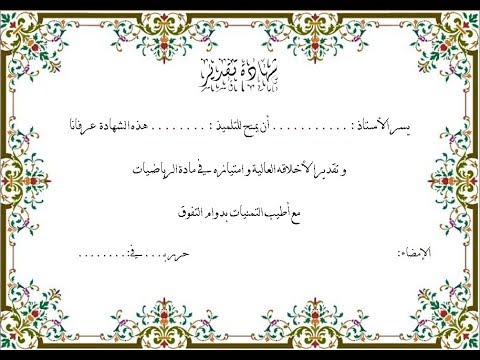 شهادة تقدير
يسر الأستاذ : . . . . . . . . . . . أن يمنح للتلميذ : . . . . . . . . هذه الشهادة عرفانا
و تقديرا لأخلاقه العالية و امتيازه في مادة الرياضيات
مع أطيب التمنيات بدوام التفوق
الإمضاء: حرر بـ . . . في: . . . . . . . .